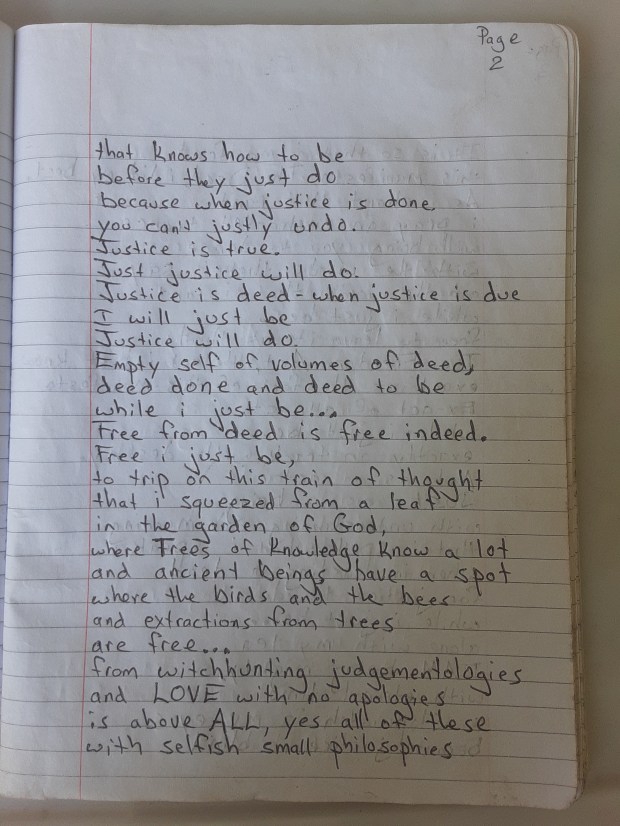 Page
2
that knows how to be
before they just do
because when justice is done
you can't justly undo.
Justice is true.
Just justice will do.
Justice is deed - when justice is due
I will just be
Justice will do.
Empty self of volumes of deed,
deed done and deed to be
while i just be...
Free from deed is free indeed.
Free i just be,
to trip on this train of thought
that i squeezed from a leaf
in the garden of God,
where Trees of Knowledge know a lot
and ancient beings have a spot
where the birds and the bees
and extractions from trees
are free...
from witchhunting judgementologies
and LOVE with no apologies
is above ALL, yes all of these
with selfish small philosophies